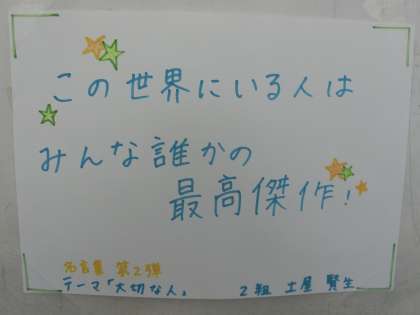 この世界にいる人は
みんな誰かの
最高傑作!
名言集 第2弾
テーマ「大切な人」
2組 土屋 賢生